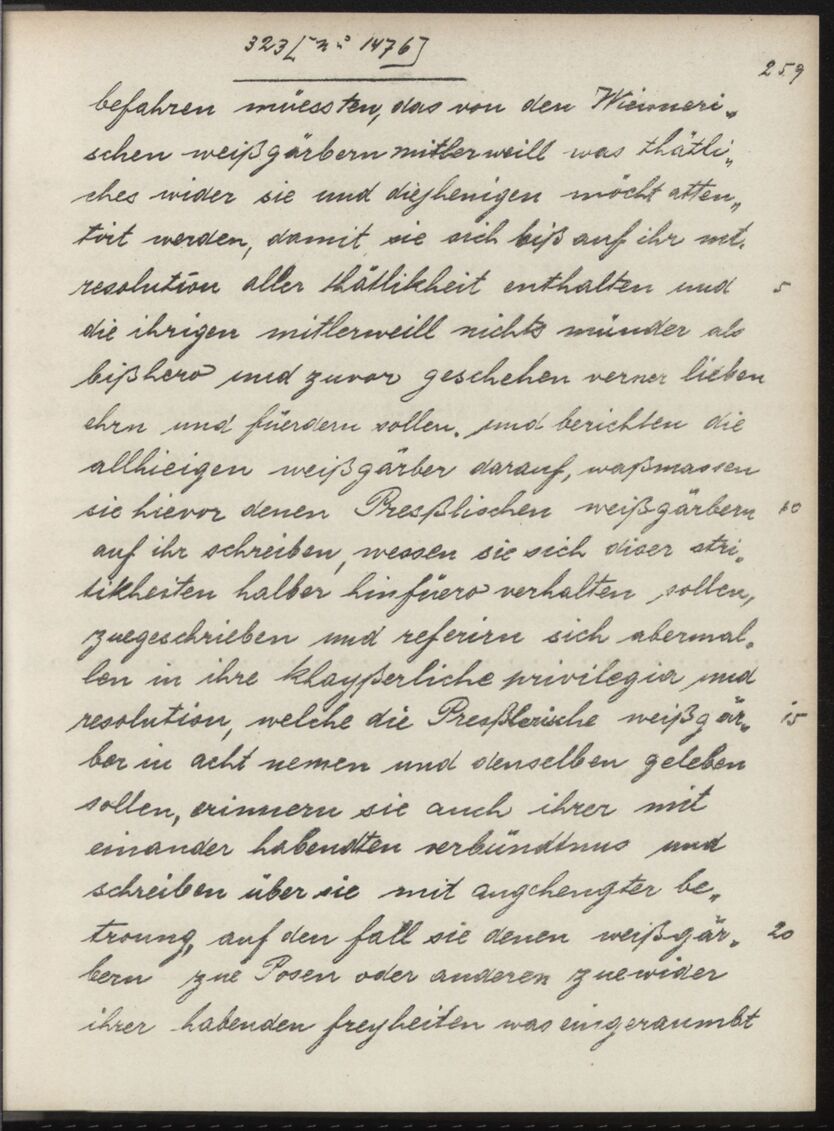 323 [nº 1476]
259
befahren müessten, das von den Wienneri„
schen weißgärbern mitlerweill was thätli„
ches wider sie und diejhenigen möcht atten„
tirt werden, damit sie sich biß auf ihr mt.
resolution aller thätlikheit enthalten und 5
die ihrigen mitlerweill nichts münder als
bißhero und zuvor geschehen verner lieben
ehrn und füerdern sollen. und berichten die
allhieigen weißgärber darauf, waßmassen
sie hievor denen Presßlischen weißgärbern 10
auf ihr schreiben, wessen sie sich diser stri„
tikheiten halber hinfüero verhalten sollen,
zuegeschrieben und referirn sich abermal„
len in ihre khayßerliche privilegia und
resolution, welche die Presßlerische weißgär„ 15
ber in acht nemen und denselben geleben
sollen, erinnern sie auch ihrer mit
einander habendten verbündtnus und
schreiben über sie mit angehengter be„
troung, auf den fall sie denen weißgär„ 20
bern zue Posen oder anderen zuewider
ihrer habenden freyheiten was eingeraumbt